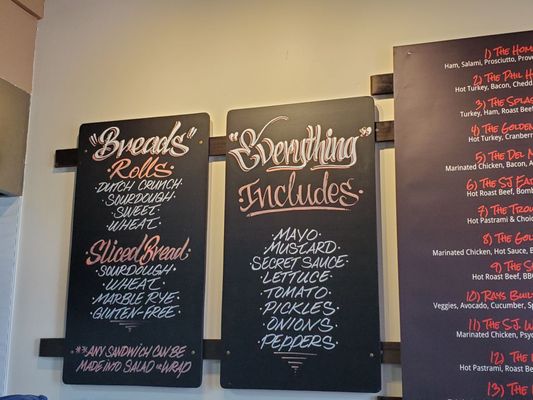 "Breads"
Rolls
·Dutch Crunch·
·Sourdough·
·Sweet·
·Wheat·
Sliced Bread
·Sourdough·
·Wheat·
·Marble Rye·
·Gluten-Free·
**Any sandwich can be
made into salad or wrap
"Everything"
·Includes·
·Mayo·
·Mustard·
·Secret Sauce·
·Lettuce·
·Tomato·
·Pickles·
·Onions·
·Peppers·
1) The
Ham, Salami, Prosciutto,
2) The Phil
Hot Turkey, Bacon,
3) The
Turkey, Ham, Roast Beef
4) The Golden
Hot Turkey,
5) The Del
Marinated Chicken, Bacon,
6) The SJ
Hot Roast Beef,
7) The
Hot Pastrami &
8) The
Marinated Chicken, Hot Sauce,
9) The
Hot Roast Beef,
10) Rays
Veggies, Avocado, Cucumber,
11) The SJ
Marinated Chicken,
12) The
Hot Pastrami, Roast
13) The